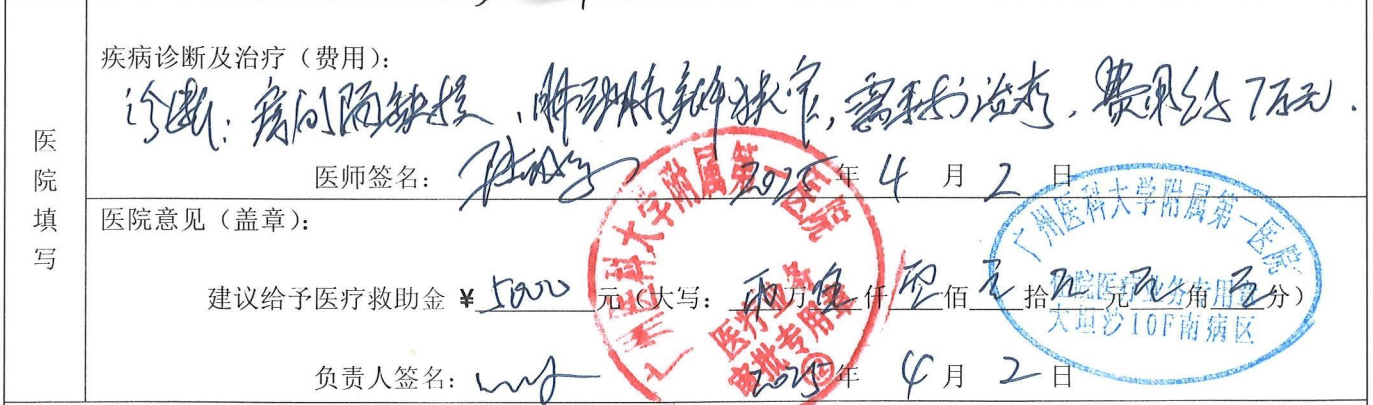 医院填写
疾病诊断及治疗（费用）：
诊断：房间隔缺损，肺动脉瓣狭窄，需手术治疗，费用约7万元.
医师签名：
2025年4月2日
医院意见（盖章）：
建议给予医疗救助金￥5000元（大写：万伍仟佰拾元角分）
负责人签名：
2025年4月2日
广州医科大学附属第一医院
医疗业务
审批专用章
广州医科大学附属第一医院
医疗业务专用
大坦沙10F南病区